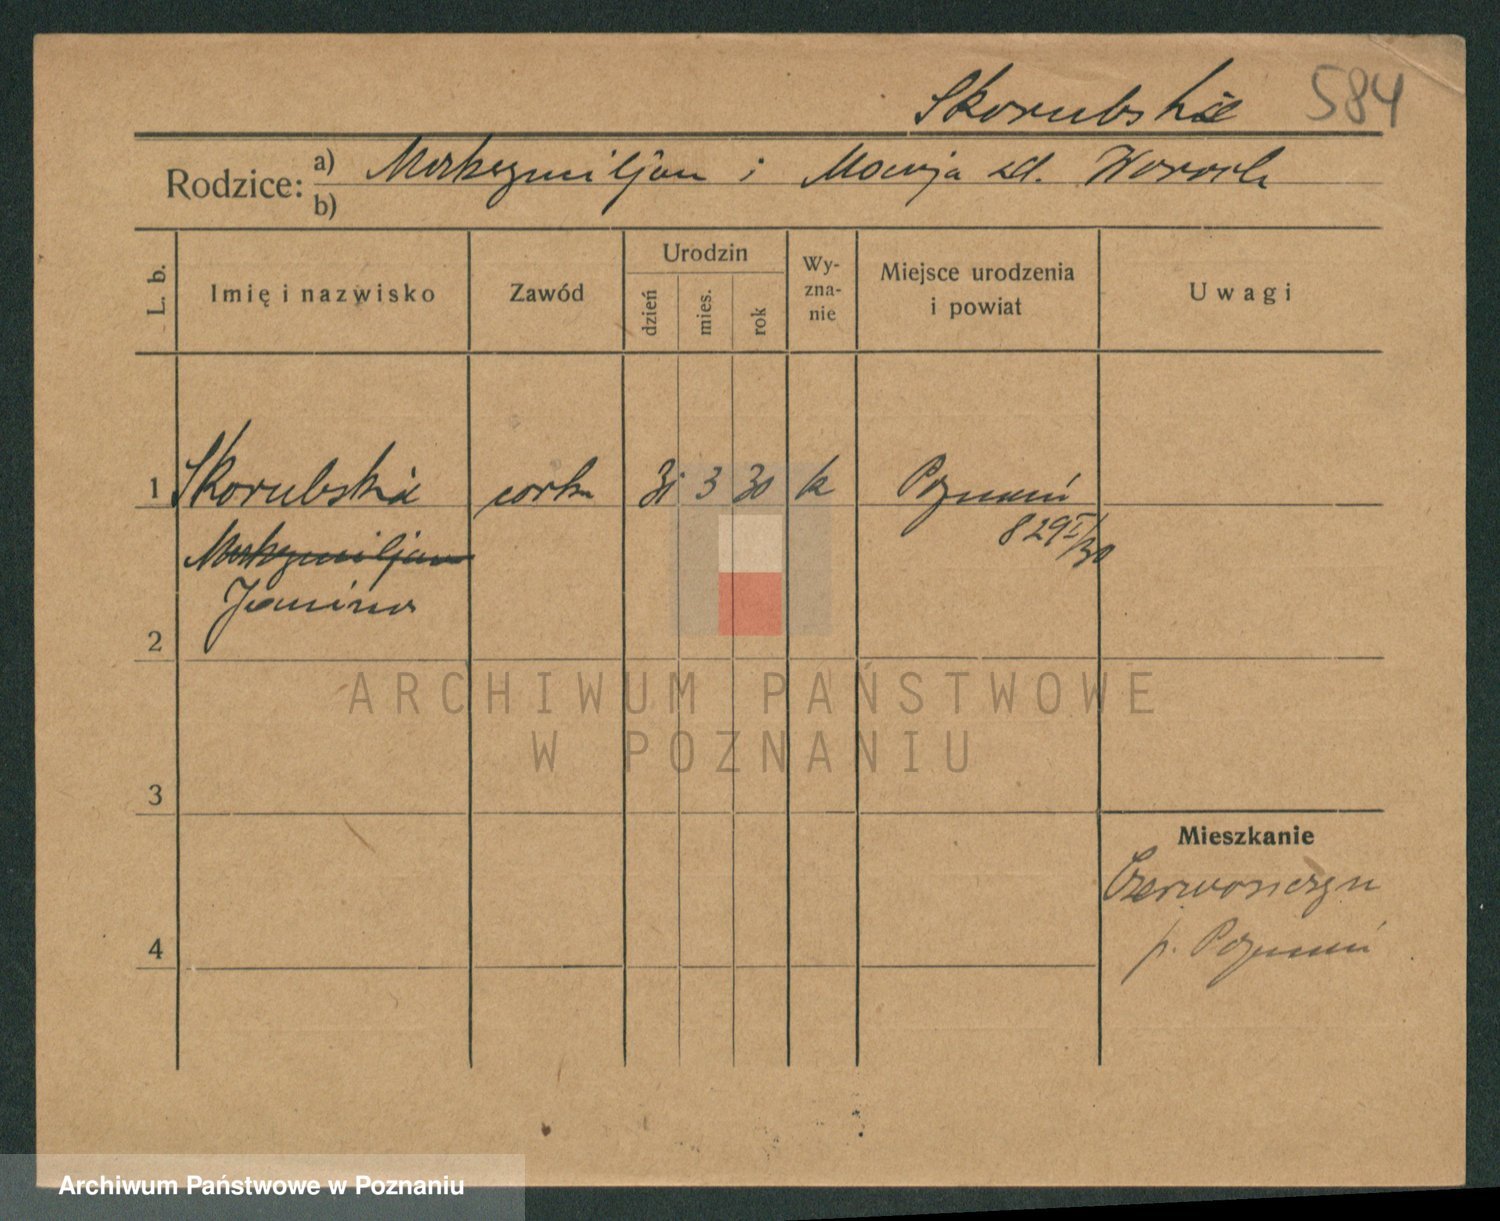 Skorubska 584
Rodzice: a) Maksymiljan i Marja zd.
b)
L. b. Imię i nazwisko Zawód Urodzin dzień mies. rok Wy-zna-nie Miejsce urodzenia i powiat Uwagi
1 Skorubska córka 31 3 30 k Poznań
829I/30
Maksymiljan
Janina
2
ARCHIWUM PAŃSTWOWE
W POZNANIU
3
Mieszkanie
4
p. Poznań
Archiwum Państwowe w Poznaniu